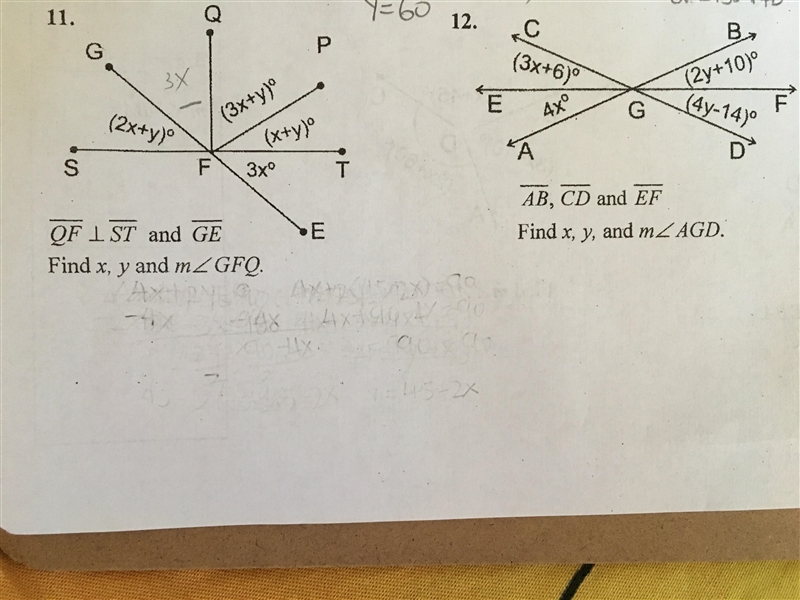 11.
Y=60
Q
P
G
3X
(3x+y)º
(2x+y)º
(x+y)º
S
F
3xº
T
E
QF ⊥ ST and GE
Find x, y and m∠GFQ.
12.
C
B
(3x+6)º
(2y+10)º
E
4xº
G
(4y-14)º
F
A
D
AB, CD and EF
Find x, y, and m∠AGD.